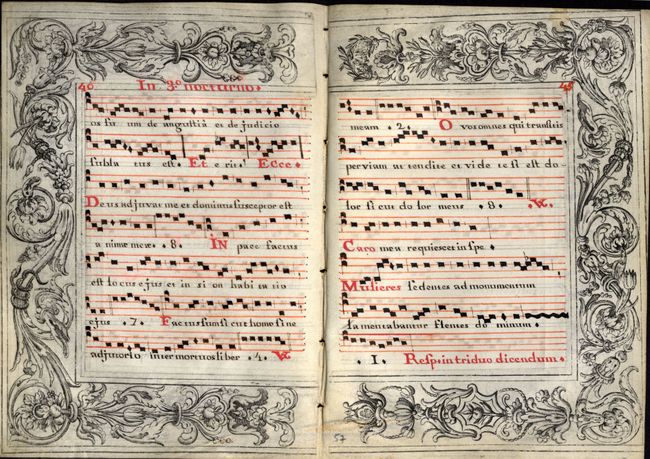 40
In 3º nocturno.
os su um de angustiâ et de judicio
subla tus est. Et e rit. Ecce.
Deus adjuvat me et dominus susceptor est
a nimæ meæ. 8. IN pace factus
est locus ejus et in si on habi ta tio
ejus. 7. Factus sum si cut homo si ne
adjutorio inter mortuos liber. 4. V.
45
meam. 2. O vos omnes qui transitis
per viam at tendite et vi de te si est do-
lor si cut do lor meus. 8. V.
Caro mea requiescet in spe.
Mulieres sedentes ad monumentum
la mentabantur flentes do minum.
1. Resp. in triduo dicendum.
57